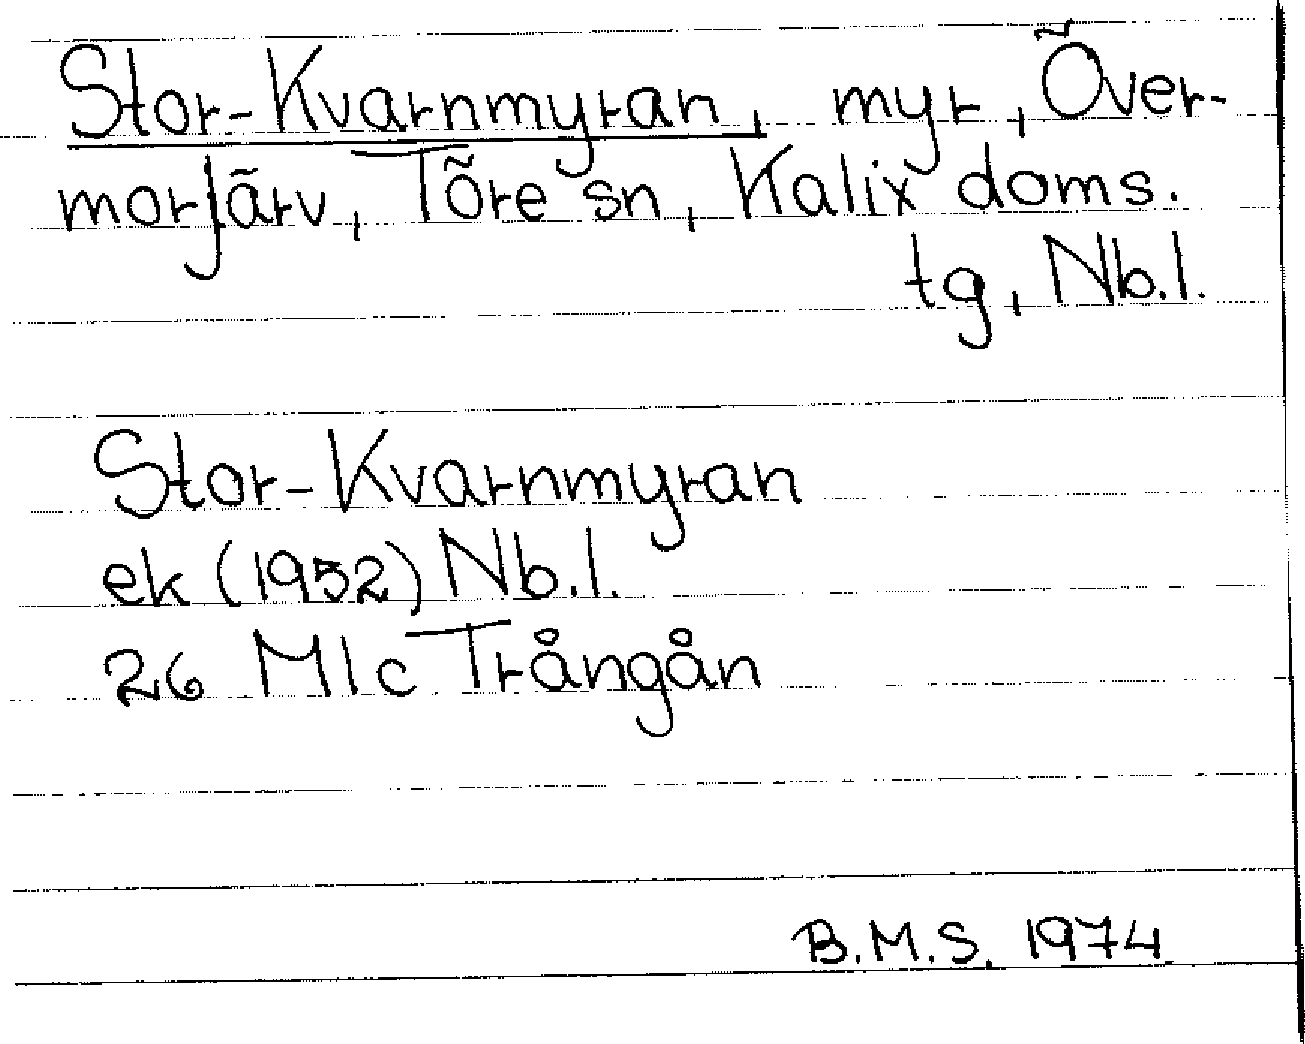 Stor-Kvarnmyran, myr, Över-
morjärv, Töre sn, Kalix doms.
tg, Nb.l.
Stor-Kvarnmyran
ek (1952) Nb.l.
26 M1c Trångån
B.M.S. 1974